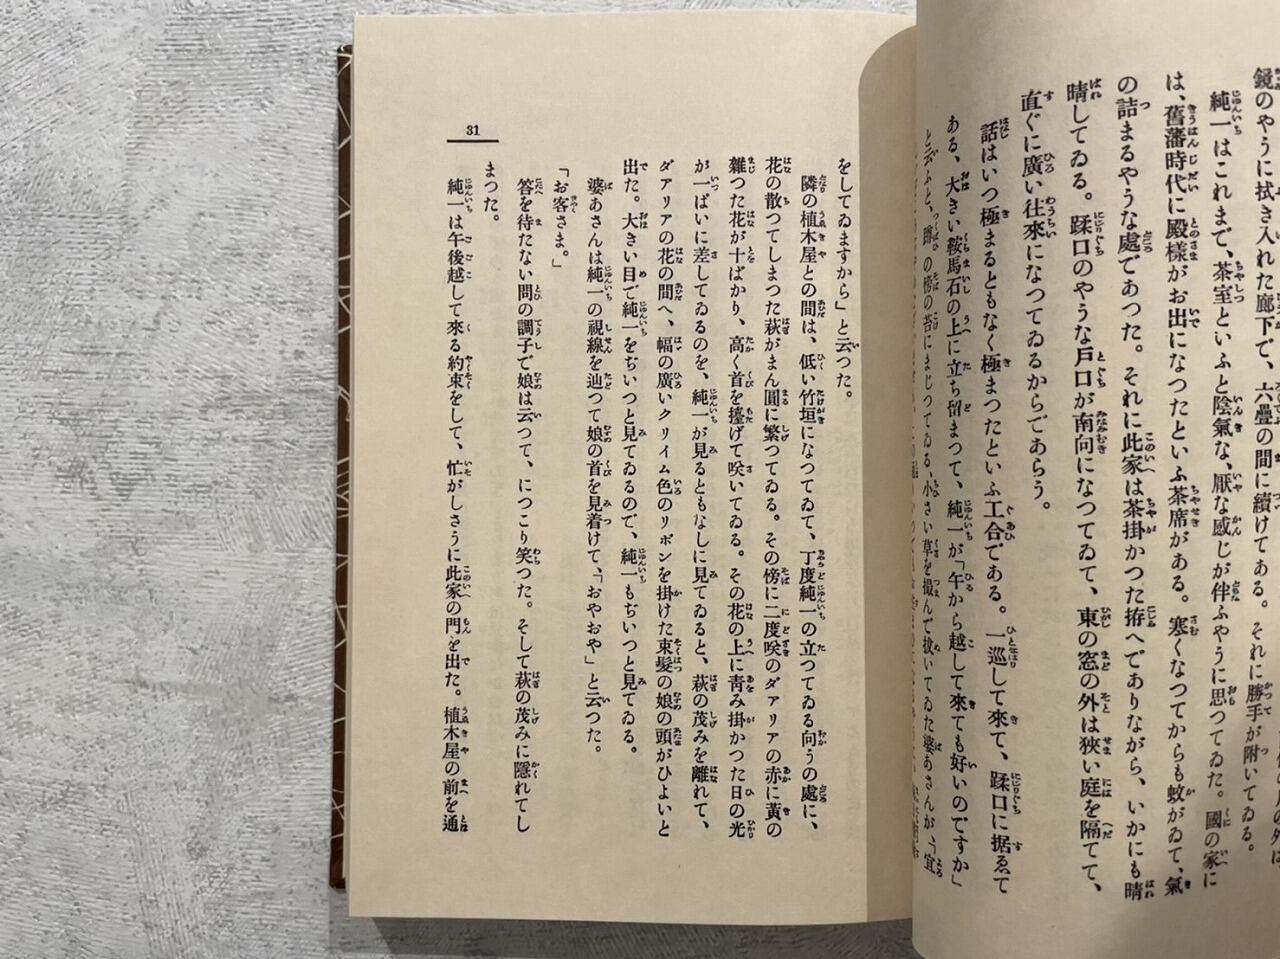 鏡のやうに拭き入れた廊下で、六疊の間に續けてある。それに勝手が附いてゐる。
純一はこれまで、茶室といふと陰氣な、厭な感じが伴ふやうに思つてゐた。國の家に
は、舊藩時代に殿樣がお出になつたといふ茶席がある。寒くなつてからも蚊がゐて、氣
の詰まるやうな處であつた。それに此家は茶掛かつた拵へでありながら、いかにも晴
晴してゐる。蹂口のやうな戸口が南向になつてゐて、東の窓の外は狹い庭を隔てて、
直ぐに廣い往來になつてゐるからであらう。
話はいつ極まるともなく極まつたといふ工合である。一巡して來て、蹂口に据ゑて
ある、大きい鞍馬石の上に立ち留まつて、純一が「午から越して來ても好いのですか」
と云ふと、蹲の傍の苔にまじつてゐる、小さい草を撮んで拔いてゐた婆あさんが、「宜
をしてゐますから」と云つた。
隣の植木屋との間は、低い竹垣になつてゐて、丁度純一の立つてゐる向うの處に、
花の散つてしまつた萩がまん圓に繁つてゐる。その傍に二度咲のダアリアの赤に黃の
雜つた花が十ばかり、高く首を擡げて咲いてゐる。その花の上に靑み掛かつた日の光
が一ぱいに差してゐるのを、純一が見るともなしに見てゐると、萩の茂みを離れて、
ダアリアの花の間へ、幅の廣いクリイム色のリボンを掛けた束髮の娘の頭がひよいと
出た。大きい目で純一をぢいつと見てゐるので、純一もぢいつと見てゐる。
婆あさんは純一の視線を辿つて娘の首を見着けて、「おやおや」と云つた。
「お客さま。」
答を待たない問の調子で娘は云つて、につこり笑つた。そして萩の茂みに隱れてし
まつた。
純一は午後越して來る約束をして、忙がしさうに此家の門を出た。植木屋の前を通
31